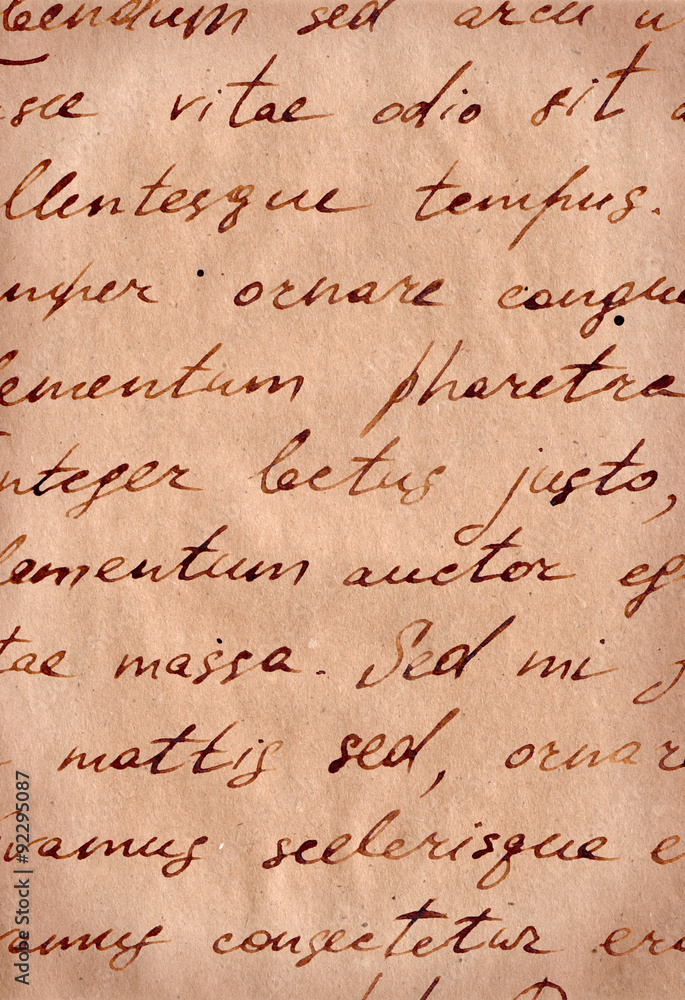 bendum sed arcu u
sce vitae odio sit a
llentesque tempus.
mper ornare congue
lementum pharetra
nteger lectus justo,
lementum auctor eg
tae massa. Sed mi j
mattis sed, ornar
vamus scelerisque e
amus consectetur era
Adobe Stock | #92295087